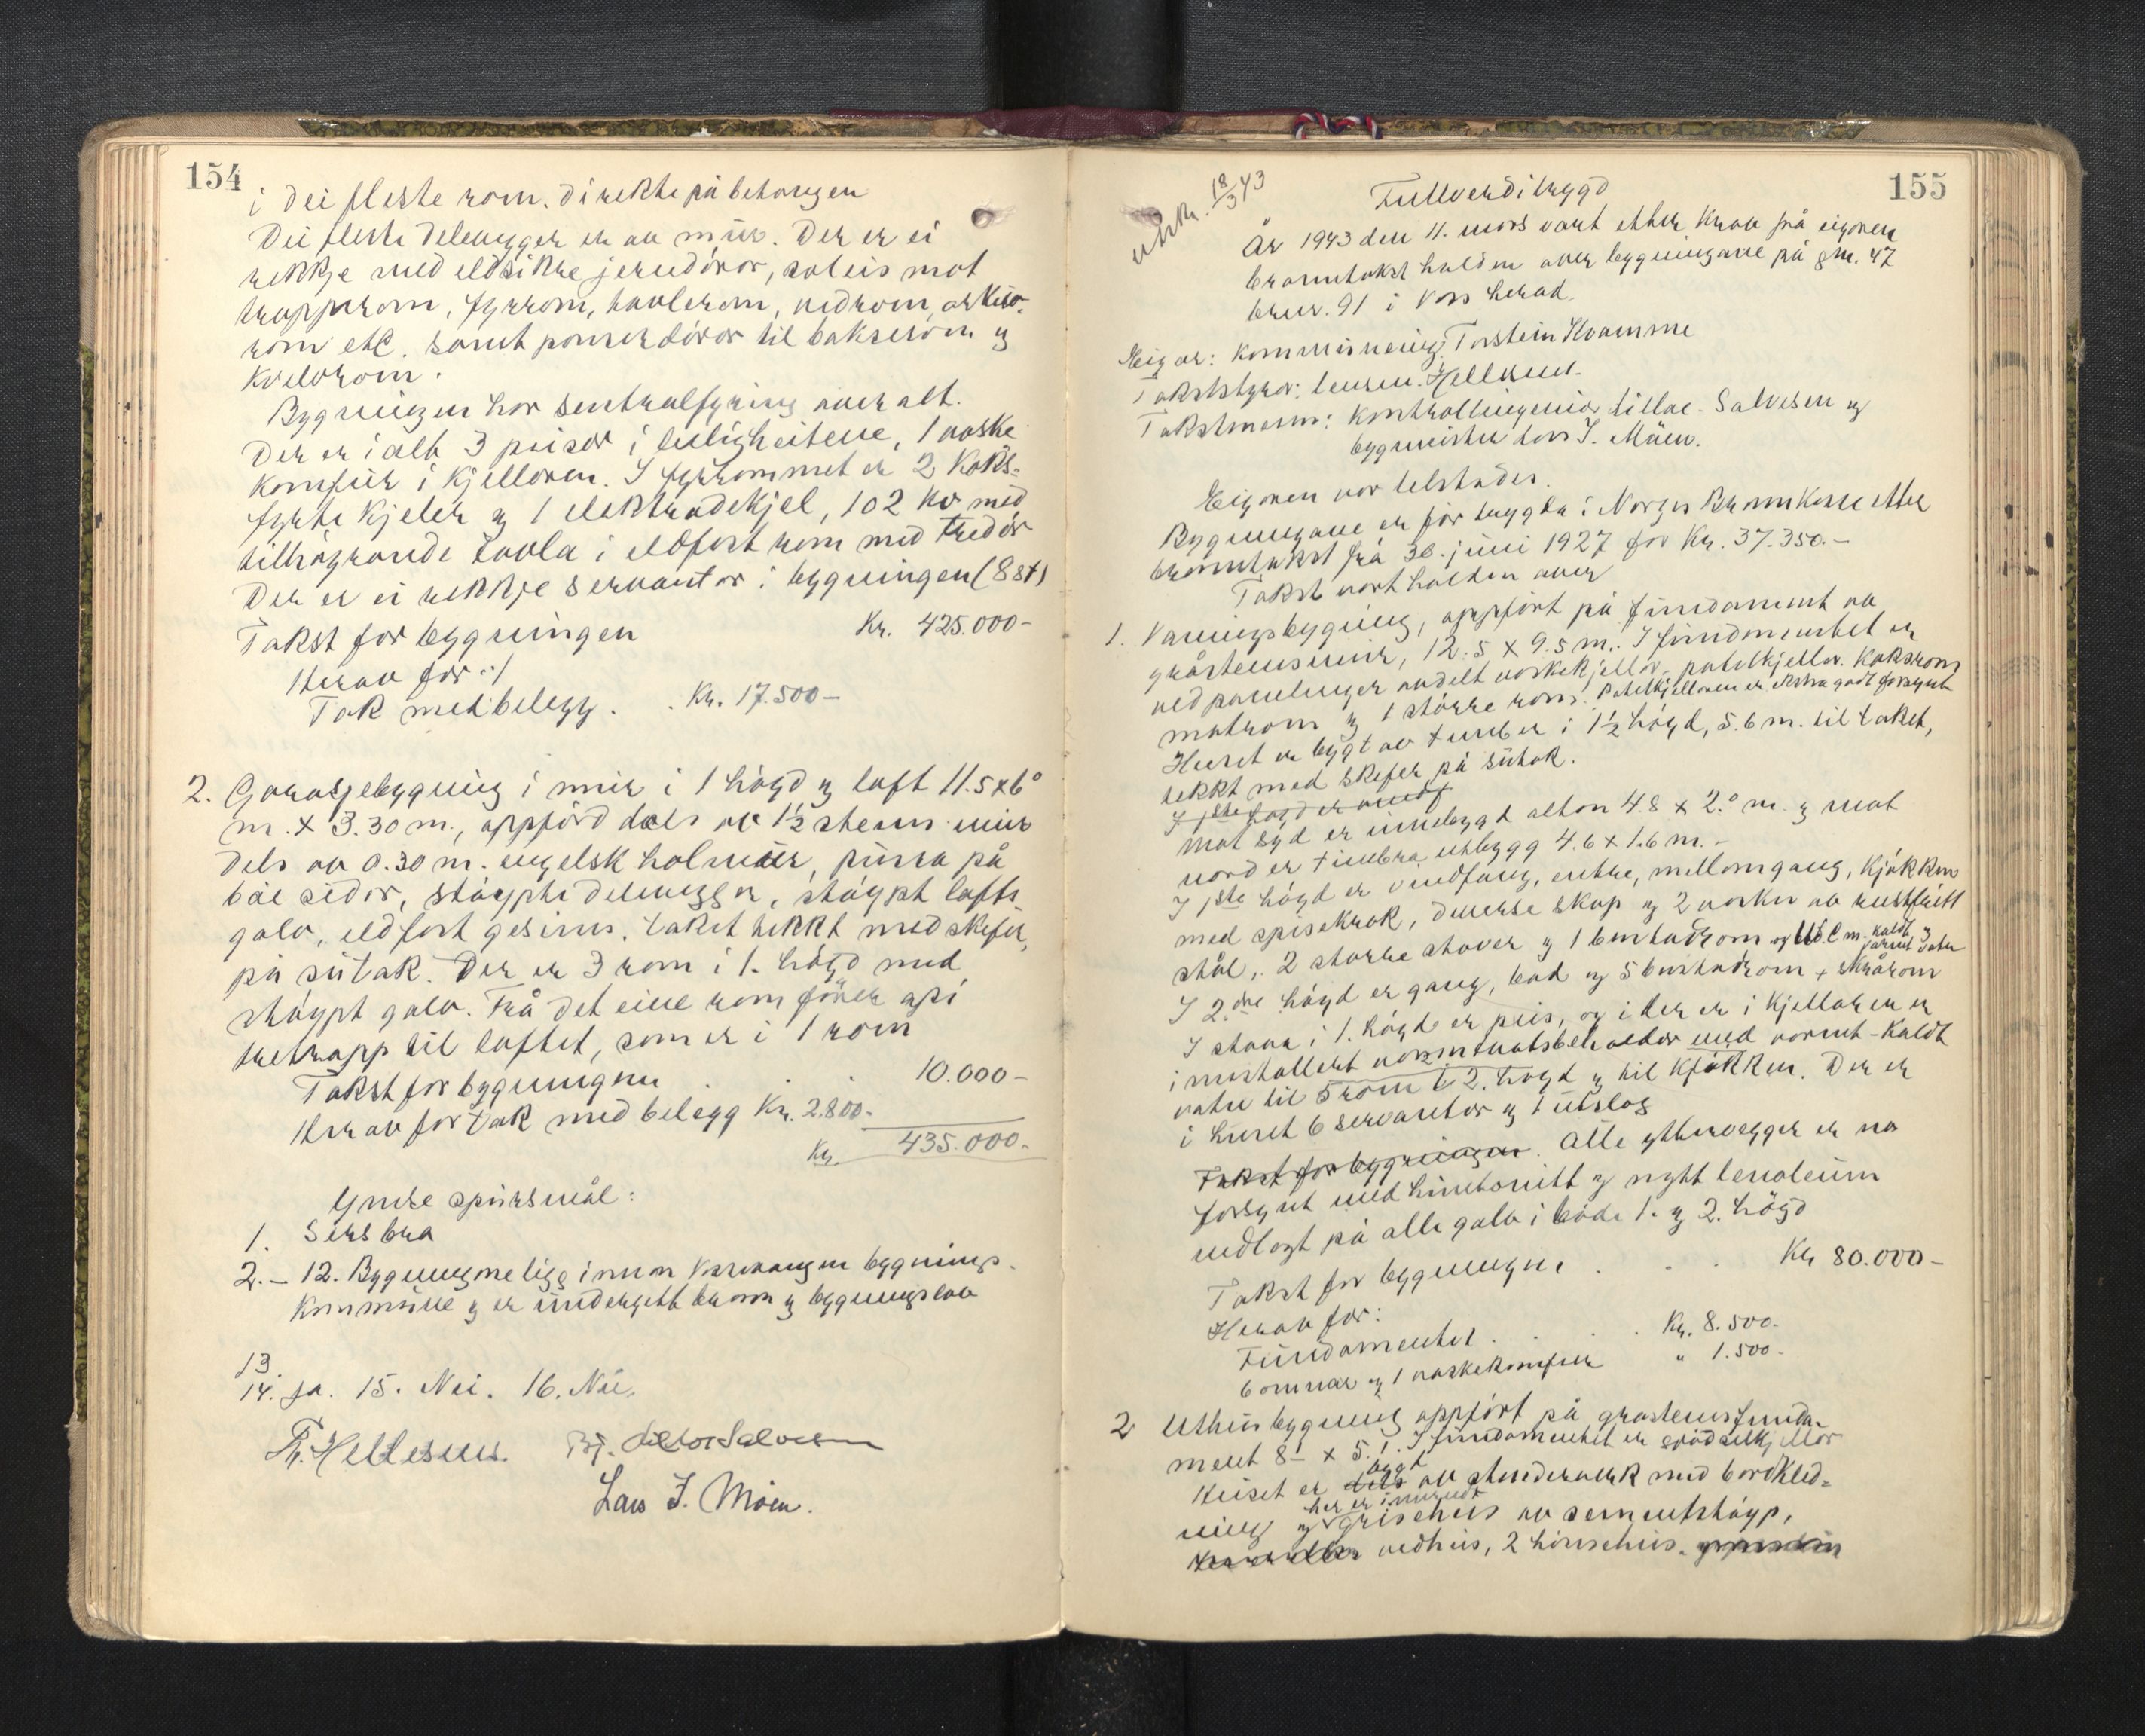 154
i dei fleste rom. direkte på betongen
Dei fleste delevegger er av mur. Der er ei
rekkje med eldsikre jerndörar, soleis mot
trapperom, fyrrom, tavlerom, vedrom, arkiv-
rom etc. samt panserdörar til boksrom og
kvelvrom.
Bygningen har sentralfyring over alt.
Der er i alt 3 peisar i leiligheitene, 1 vaske
komfür i kjelleren. I fyrrommet er 2 koks-
fyrte kjeler og 1 elektrodekjel, 102 kv med
tilhöyrande tavla i eldfast rom med tredör
Der er ei rekkje servantar i bygningen (8 st)
Takst for bygningen Kr. 425.000-
Herav for :/
Tak med belegg . . Kr. 17.500-
2. Garasjebygning i mur i 1 högd og loft 11.5 x 6°
m. x 3.30 m., oppförd dels av 1½ steins mur
dels av 0.30 m. engelsk holmür, pussa på
båe sidor, stöypte delevegger, stöypt lofts
golv, eldfast gesims. Taket tekkt med skifer
på sütak. Der er 3 rom i 1. högd med
stöypt golv. Frå det eine rom förer opi
tretrapp til loftet, som er i 1 rom
Takst for bygningen . . . 10.000-
Herav for tak med belegg Kr. 2.800.-
Kr. 435.000.-
Ymse spürsmål:
1. Sers bra
2.- 12. Bygningane ligg innan Vossevangen bygnings-
kommüne og er ündergitt brann og bygningslov
13.
14. Ja. 15. Nei. 16. Nei.
Th. Hellesnes. Bj. Salvesen
Lars J. Möen.
155
utskr. 18/3 43
Fullverditrygd
År 1943 den 11. mars vart etter krav frå eigaren
branntakst halden over bygningane på gnr. 47
brnr. 91 i Voss herad.
Eigar: Kommuneing. Torstein Kvamme
Takststyrar: lensm. Hellesnes.
Takstmenn: Kontrollingeniör Salvesen og
bygmeister Lars J. Möen.
Eigaren var tilstades.
Bygningane er för trygda i Norges Brannkasse etter
branntakst frå 30. juni 1927 for Kr. 37.350.-
Takst vart halden over
1. Vaningsbygning, oppfört på fündament av
gråsteinsmur, 12.5 x 9.5 m. I fundamentet er
ved panelinger avdelt vaskekjellar, potetkjellar, koksrom
matrom og 1 större rom. Potetkjelleren er ekstra godt forsynt
Huset er bygt av tumber i 1½ högd, 5.6 m. til taket,
tekkt med skifer på sütak.
I 1ste högd er
Mot syd er innebygd altan 4.8 x 2.° m. og mot
nord er timbra utbygg 4.6 x 1.6 m. -
I 1ste högd er vindfang, entre, mellomgang, kjökken
med spisekrok, diverse skap og 2 vasker av rustfritt
stål, 2 större stover og 1 bustadrom og W.C m. kaldt og varmt vatn
I 2.dre högd er gang, bad og 5 bustadrom + skrårom
I stova i 1. högd er peis, og i der er i kjelleren er
innstallert varmtvatsbeholder med varmt-kaldt
vatn til 5 rom i 2. högd og til kjökken. Der er
i huset 6 servantar og 1 utslag
Takst for bygningen. Alle yttervegger er no
forsynt med hüntonitt og nytt lenoleüm
nedlagt på alle golv i både 1. og 2. högd
Takst for bygningen . . . Kr 80.000-
Herav for:
Fündamentet . . . Kr. 8.500.-
6 omnar og 1 vaskekomfur " 1.500.-
2 Uthüsbygning oppfört på gråsteinsfunda-
ment 8- x 5.! . I fündamentet er gjödselkjellar
Huset er dels bygd av stenderverk med bordkled-
ning og her er innreidt grisehus av sementstöyp,
vedhüs, 2 hönsehüs.